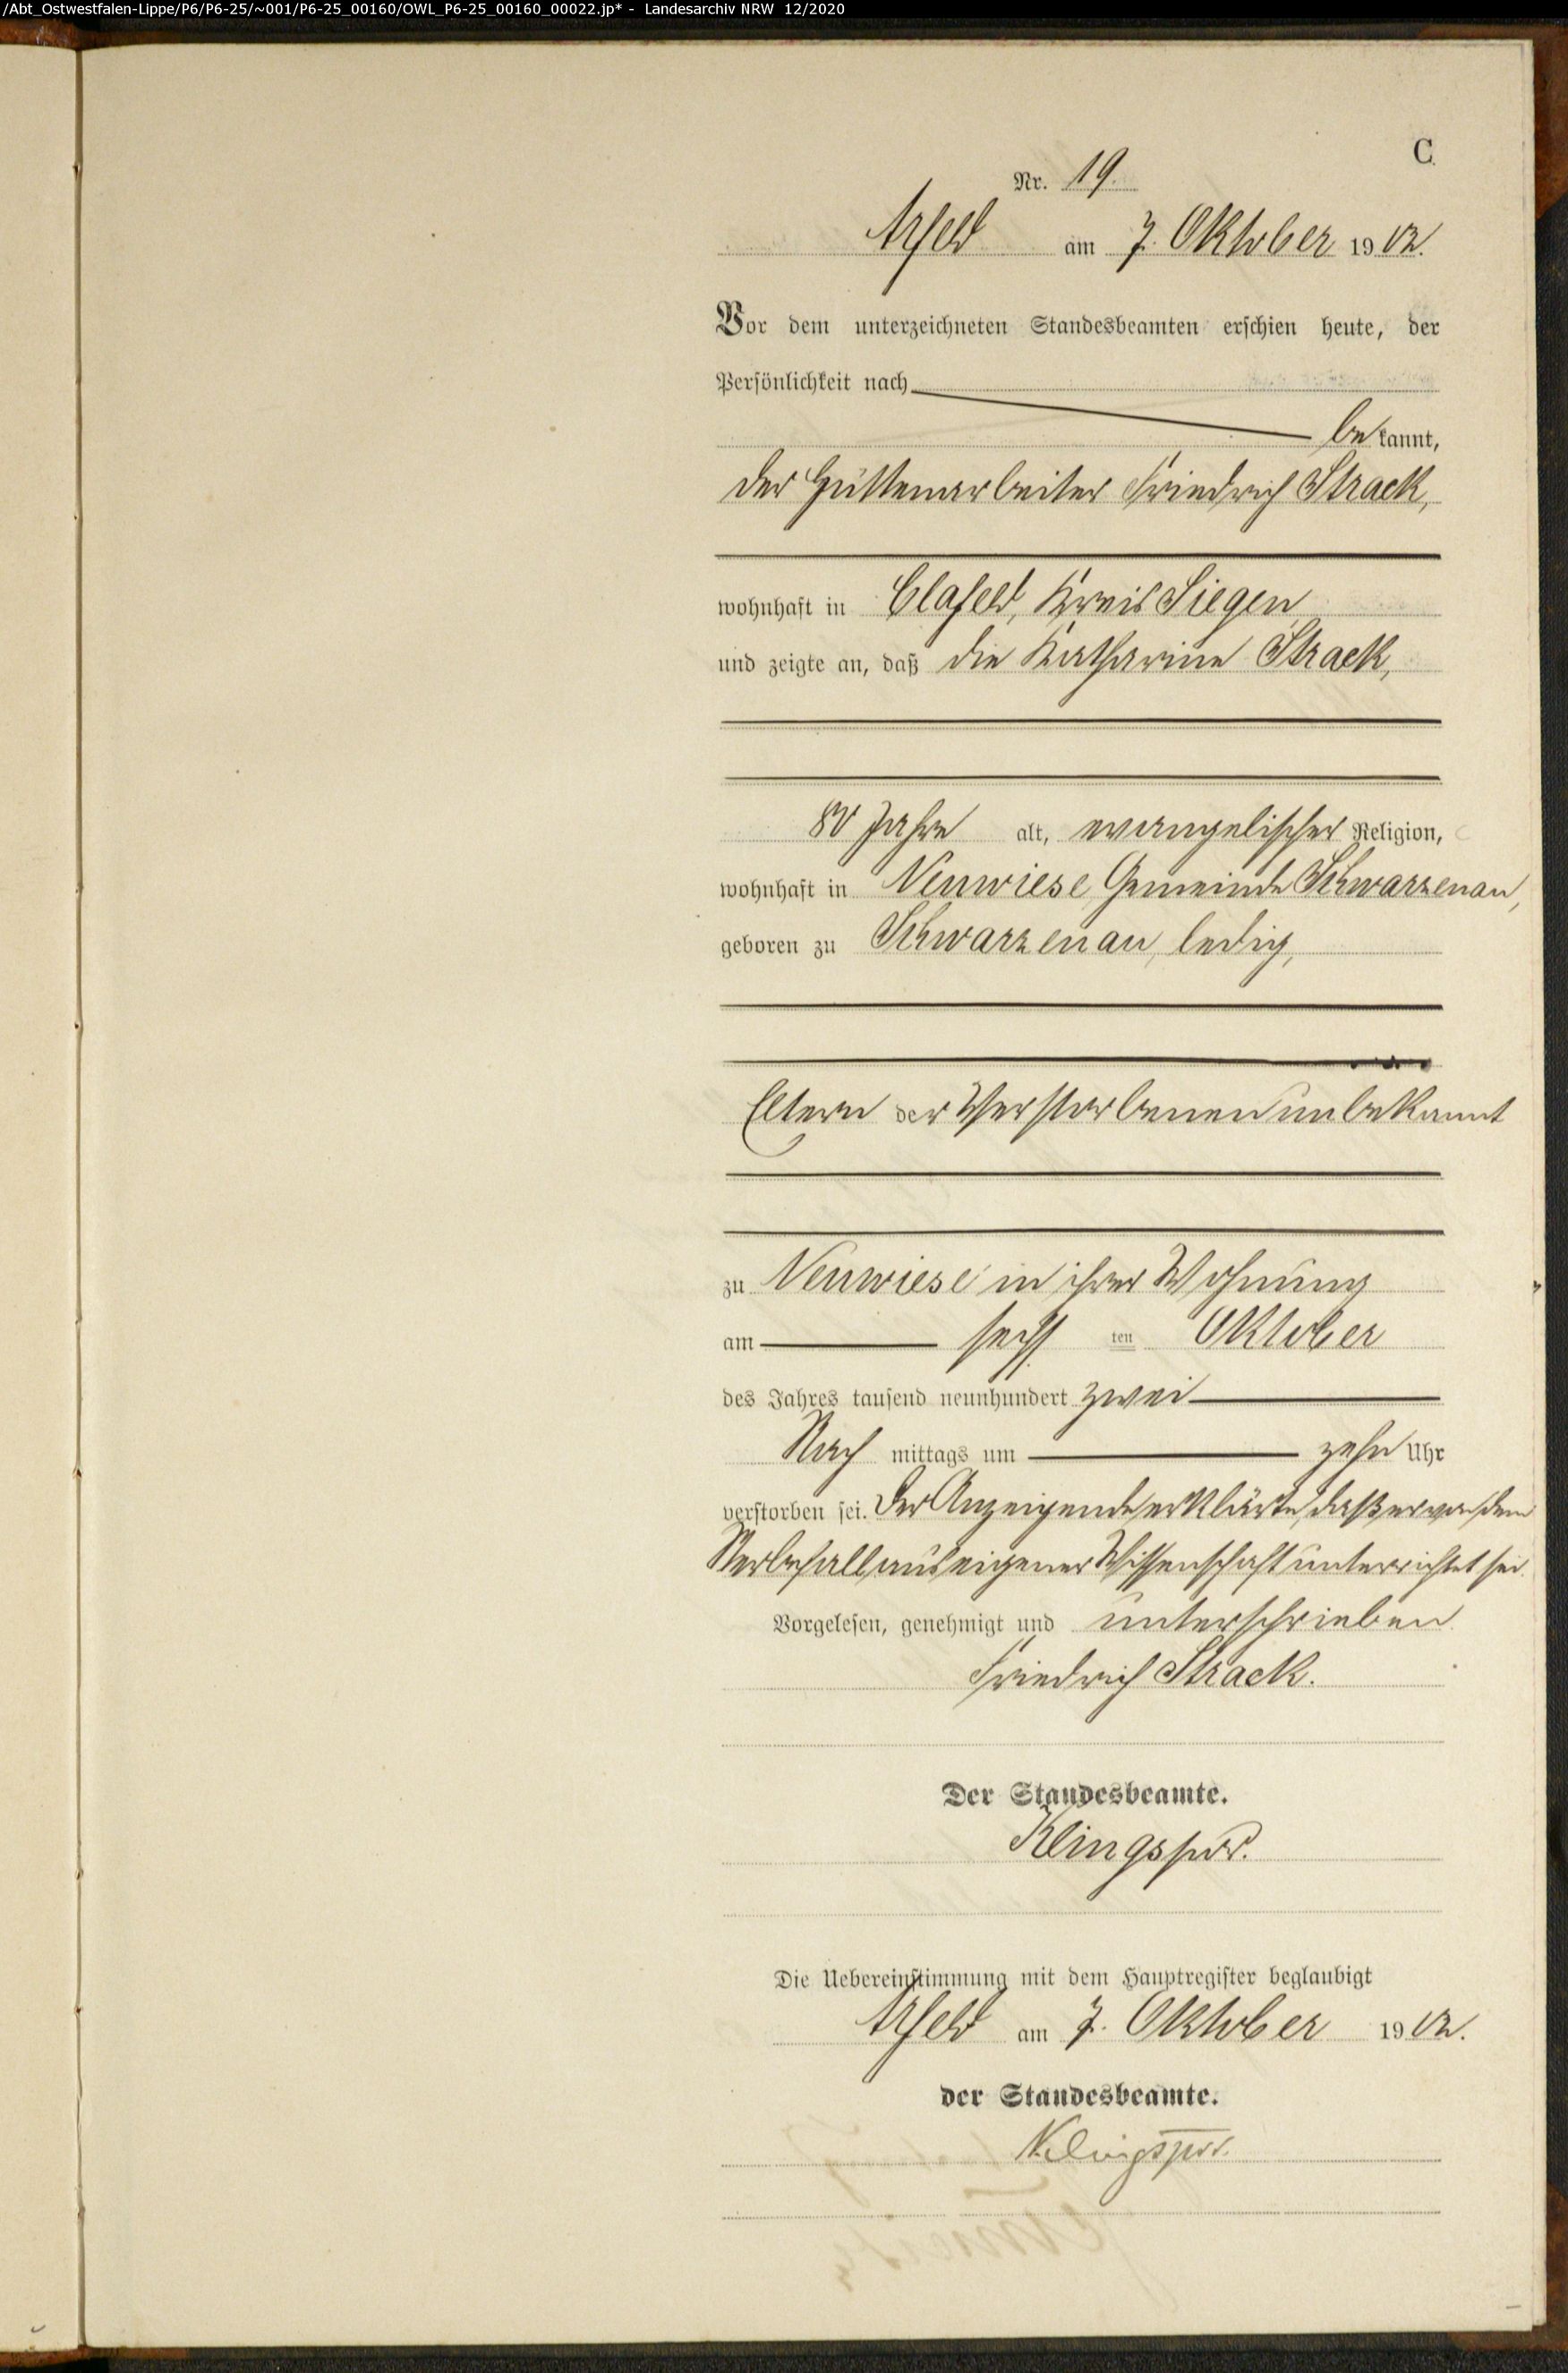 /Abt_Ostwestfalen-Lippe/P6/P6-25/~001/P6-25_00160/OWL_P6-25_00160_00022.jp* - Landesarchiv NRW 12/2020
C.
Nr. 19.
Arfeld am 7. Oktober 1902.
Vor dem unterzeichneten Standesbeamten erschien heute, der
Persönlichkeit nach
bekannt,
der Hüttenarbeiter Friedrich Strack,
wohnhaft in Clafeld, Kreis Siegen
und zeigte an, daß die Katharine Strack,
80 Jahre alt, evangelischer Religion,
wohnhaft in Neuwiese, Gemeinde Schwarzenau,
geboren zu Schwarzenau, ledig,
Eltern der Verstorbenen unbekannt
zu Neuwiese in ihrer Wohnung
am sechs ten Oktober
des Jahres tausend neunhundert zwei
Nach mittags um zehn Uhr
verstorben sei. Der Anzeigende erklärte, daß er von dem
Sterbefall aus eigener Wissenschaft unterrichtet sei.
Vorgelesen, genehmigt und unterschrieben
Friedrich Strack.
Der Standesbeamte.
Klingspor.
Die Uebereinstimmung mit dem Hauptregister beglaubigt
Arfeld am 7. Oktober 1902.
der Standesbeamte.
Klingspor.